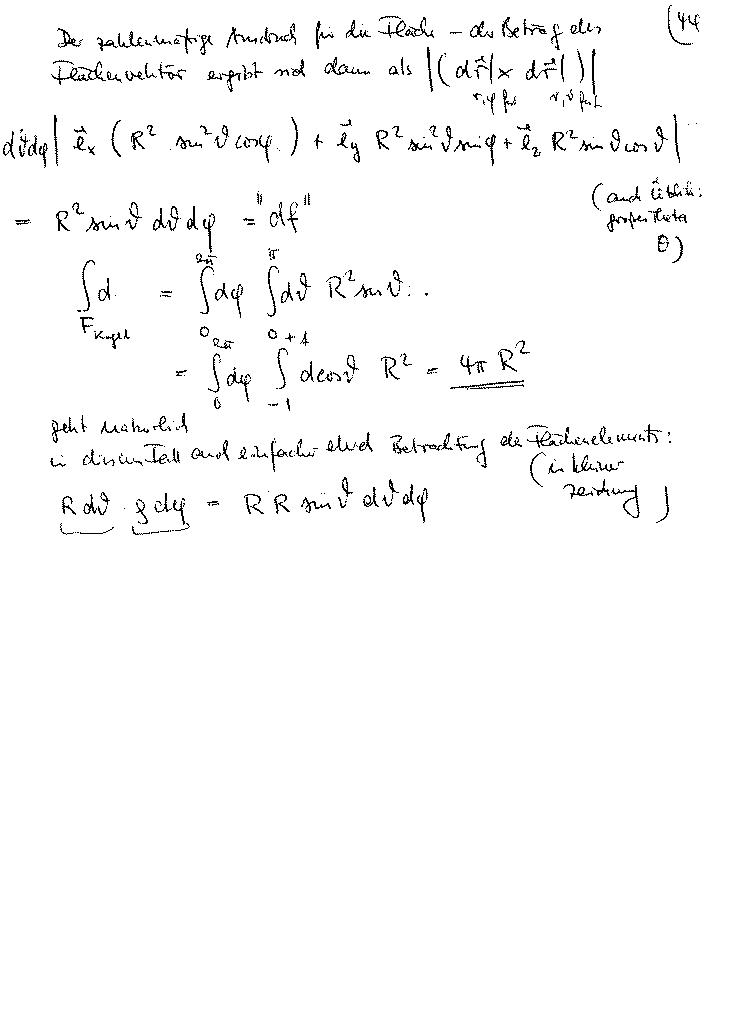 (44
Der zahlenmäßige Ausdruck für die Fläche – der Betrag des
Flächenvektors ergibt sich dann als |(dr⃗| × dr⃗|)|
r,φ fest r,ϑ fest
dϑdφ| e⃗x (R² sin²ϑ cosφ) + e⃗y R² sin²ϑ sinφ + e⃗z R² sinϑ cosϑ|
= R² sinϑ dϑ dφ = "df"
(auch üblich:
großes Theta
θ)
∫d = ∫dφ ∫dϑ R² sinϑ..
F Kugel 0 2π 0 π
= ∫dφ ∫ dcosϑ R² = 4π R²
0 2π -1 +1
geht natürlich
in diesem Fall auch einfacher durch Betrachtung des Flächenelements:
(in kleiner
Zeichnung)
R dϑ · ρ dφ = R R sinϑ dϑ dφ